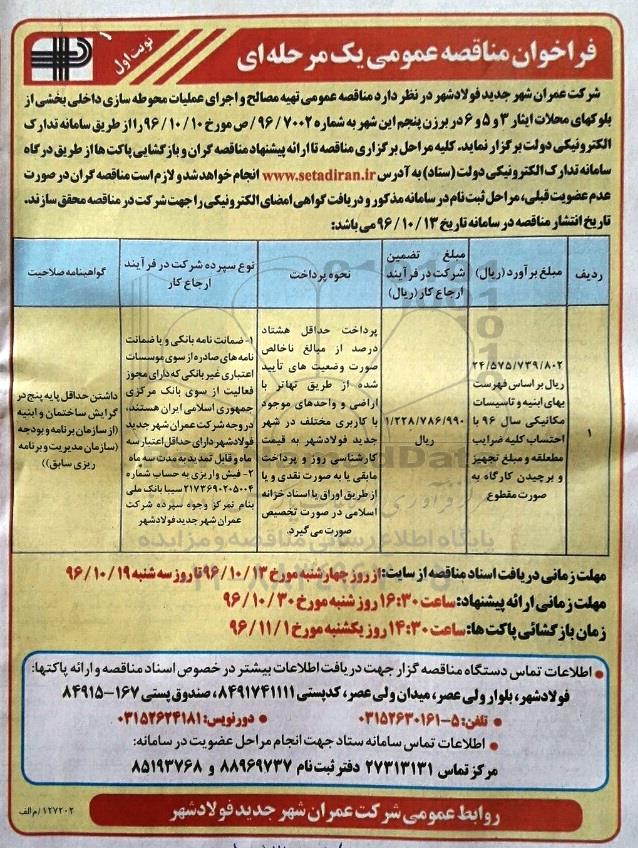 فراخوان مناقصه عمومی یک مرحله ای
نوبت اول
شرکت عمران شهر جدید فولادشهر در نظر دارد مناقصه عمومی تهیه مصالح و اجرای عملیات محوطه سازی داخلی بخشی از
بلوکهای محلات ایثار ۳ و ۵ و ۶ در برزن پنجم این شهر به شماره ۹۶/۷۰۰۲/ص مورخ ۹۶/۱۰/۱۰ را از طریق سامانه تدارک
الکترونیکی دولت برگزار نماید. کلیه مراحل برگزاری مناقصه تا ارائه پیشنهاد مناقصه گران و بازگشایی پاکت ها از طریق درگاه
سامانه تدارک الکترونیکی دولت (ستاد) به آدرس www.setadiran.ir انجام خواهد شد و لازم است مناقصه گران در صورت
عدم عضویت قبلی، مراحل ثبت نام در سامانه مذکور و دریافت گواهی امضای الکترونیکی را جهت شرکت در مناقصه محقق سازند.
تاریخ انتشار مناقصه در سامانه تاریخ ۹۶/۱۰/۱۳ می باشد:
ردیف
مبلغ برآورد (ریال)
مبلغ تضمین
شرکت در فرآیند
ارجاع کار (ریال)
نحوه پرداخت
نوع سپرده شرکت در فرآیند
ارجاع کار
گواهینامه صلاحیت
۱
۲۴/۵۷۵/۷۳۹/۸۰۲
ریال بر اساس فهرست
بهای ابنیه و تاسیسات
مکانیکی سال ۹۶ با
احتساب کلیه ضرایب
مطعلقه و مبلغ تجهیز
و برچیدن کارگاه به
صورت مقطوع
۱/۲۲۸/۷۸۶/۹۹۰
ریال
پرداخت حداقل هشتاد
درصد از مبالغ ناخالص
صورت وضعیت های تأیید
شده از طریق تهاتر با
اراضی و واحدهای موجود
با کاربری مختلف در شهر
جدید فولادشهر به قیمت
کارشناسی روز و پرداخت
مابقی یا به صورت نقدی و یا
از طریق اوراق یا اسناد خزانه
اسلامی در صورت تخصیص
صورت می گیرد
۱- ضمانت نامه بانکی و یا ضمانت
نامه های صادره از سوی موسسات
اعتباری غیر بانکی که دارای مجوز
فعالیت از سوی بانک مرکزی
جمهوری اسلامی ایران هستند،
در وجه شرکت عمران شهر جدید
فولادشهر دارای حداقل اعتبار سه
ماه و قابل تمدید به مدت سه ماه
۲- فیش واریزی به حساب شماره
۲۱۷۳۶۹۰۲۰۵۰۰۴ سیبا بانک ملی
بنام تمرکز وجوه سپرده شرکت
عمران شهر جدید فولادشهر
داشتن حداقل پایه پنج در
گرایش ساختمان و ابنیه
(از سازمان برنامه و بودجه
(سازمان مدیریت و برنامه
ریزی سابق))
مهلت زمانی دریافت اسناد مناقصه از سایت: از روز چهارشنبه مورخ ۹۶/۱۰/۱۳ تا روز سه شنبه ۹۶/۱۰/۱۹
مهلت زمانی ارائه پیشنهاد: ساعت ۱۶:۳۰ روز شنبه مورخ ۹۶/۱۰/۳۰
زمان بازگشائی پاکت ها: ساعت ۱۴:۳۰ روز یکشنبه مورخ ۹۶/۱۱/۱
اطلاعات تماس دستگاه مناقصه گزار جهت دریافت اطلاعات بیشتر در خصوص اسناد مناقصه و ارائه پاکتها:
فولادشهر، بلوار ولی عصر، میدان ولی عصر، کدپستی ۸۴۹۱۷۴۱۱۱۱، صندوق پستی ۱۶۷-۸۴۹۱۵
تلفن: ۵-۰۳۱۵۲۶۳۰۱۶۱ دورنویس: ۰۳۱۵۲۶۲۴۱۸۱
اطلاعات تماس سامانه ستاد جهت انجام مراحل عضویت در سامانه:
مرکز تماس ۲۷۳۱۳۱۳۱ دفتر ثبت نام ۸۸۹۶۹۷۳۷ و ۸۵۱۹۳۷۶۸
روابط عمومی شرکت عمران شهر جدید فولادشهر
۱۲۷۲۰۲/م الف
پایگاه اطلاع رسانی مناقصه و مزایده